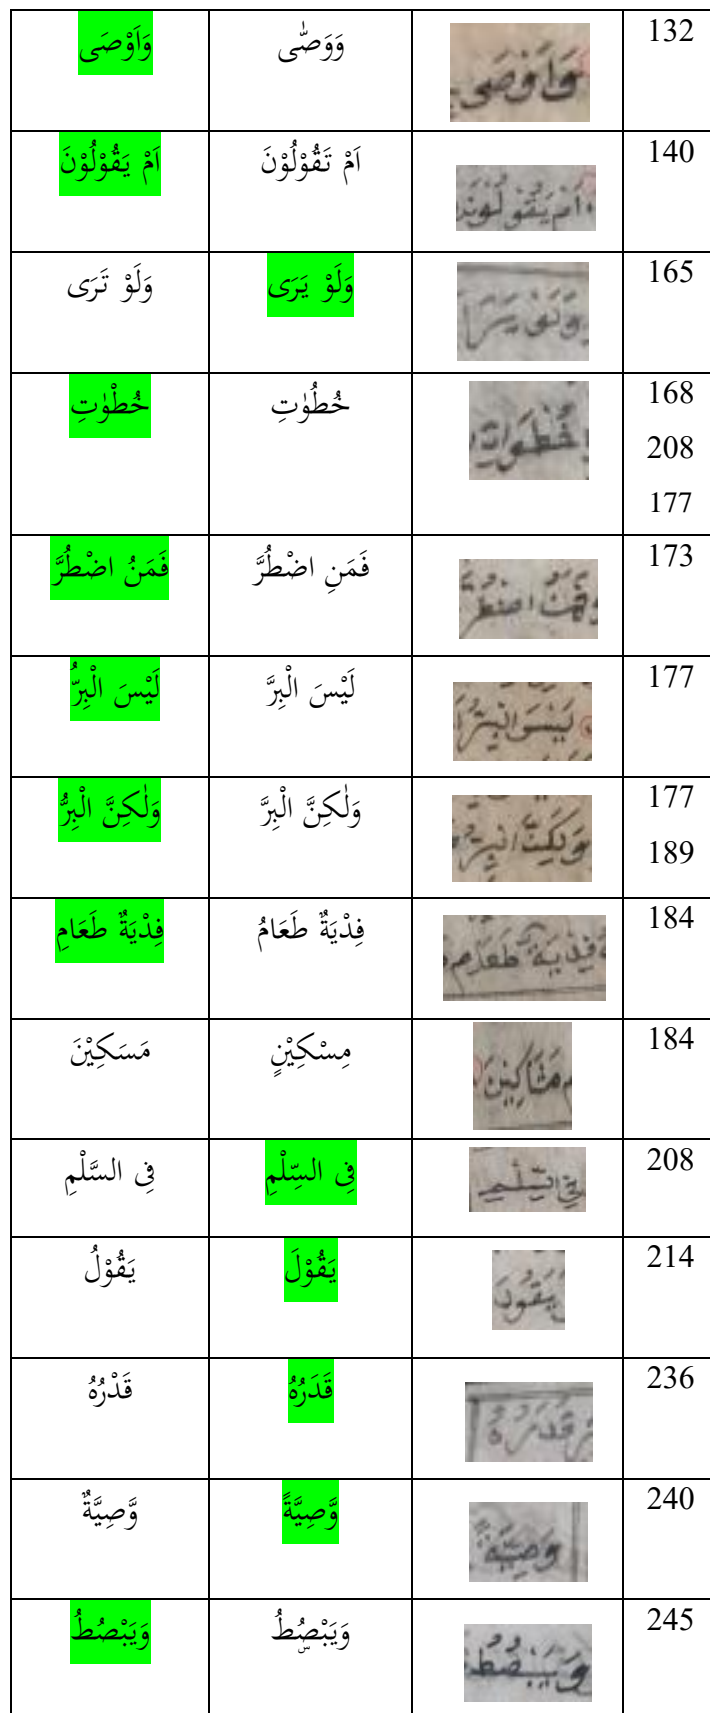 132 وَوَصّٰى وَاَوْصَى
وَاَوْصَى
140 اَمْ تَقُوْلُوْنَ اَمْ يَقُوْلُوْنَ
اَمْ يَقُوْلُوْنَ
165 وَلَوْ يَرَى وَلَوْ تَرَى
وَلَوْ يَرَا
168 خُطُوٰتِ خُطْوٰتِ
خُطْوَاتِ
208
177
173 فَمَنِ اضْطُرَّ فَمَنُ اضْطُرَّ
فَمَنُ اضْطُرَّ
177 لَيْسَ الْبِرَّ لَيْسَ الْبِرُّ
لَيْسَ الْبِرُّ
177 وَلٰكِنَّ الْبِرَّ وَلٰكِنَّ الْبِرُّ
وَلَكِنَّ الْبِرُّ
189
184 فِدْيَةٌ طَعَامُ فِدْيَةٌ طَعَامِ
فِدْيَةٌ طَعَامِ
184 مِسْكِيْنٍ مَسَكِيْنَ
مَسَاكِيْنَ
208 فِى السِّلْمِ فِى السَّلْمِ
فِى السِّلْمِ
214 يَقُوْلَ يَقُوْلُ
يَقُوْلَ
236 قَدَرُهُ قَدْرُهُ
قَدَرُهُ
240 وَّصِيَّةً وَّصِيَّةٌ
وَصِيَّةً
245 وَيَبْصُۣطُ وَيَبْصُطُ
وَيَبْصُطُ